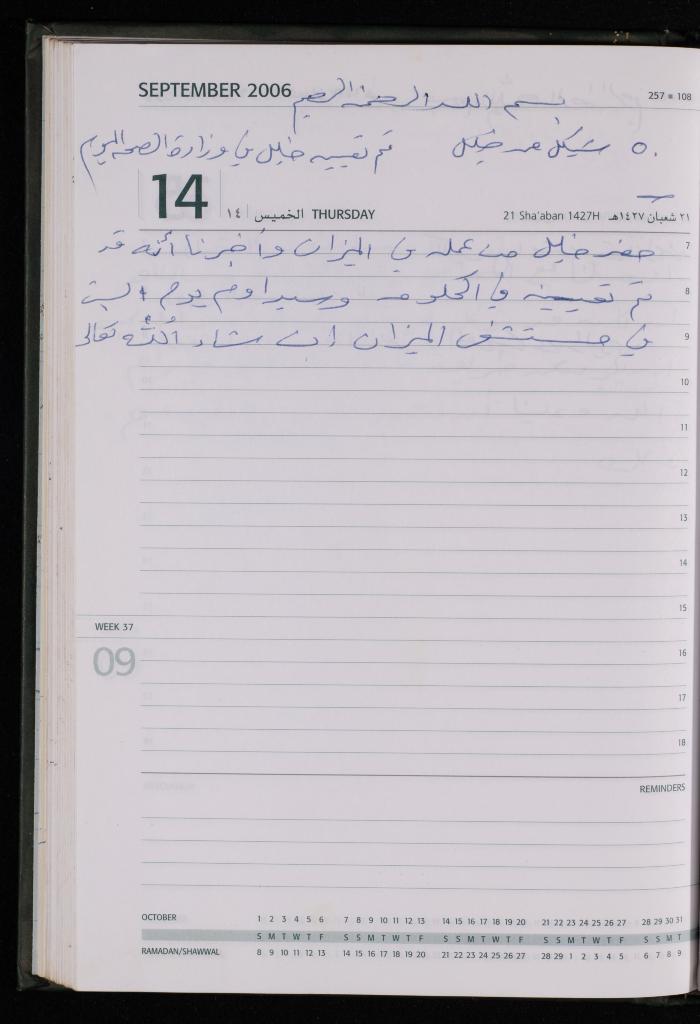 SEPTEMBER 2006
بسم الله الرحمن الرحيم
257 = 108
٥٠ شيكل من خليل تم تعيين خليل في وزارة الصحة اليوم
14 ١٤ الخميس THURSDAY
21 Sha'aban 1427H ٢١ شعبان ١٤٢٧هـ
7
حضر خليل من عمله في الميزان وأخبرنا أنه قد
8
تم تعيينه في الحكومة وسيداوم يوم السبت
9
في مستشفى الميزان إن شاء الله تعالى
10
11
12
13
14
15
WEEK 37
09
16
17
18
REMINDERS
OCTOBER 1 2 3 4 5 6 7 8 9 10 11 12 13 14 15 16 17 18 19 20 21 22 23 24 25 26 27 28 29 30 31
S M T W T F S S M T W T F S S M T W T F S S M T W T F S S M T
RAMADAN/SHAWWAL 8 9 10 11 12 13 14 15 16 17 18 19 20 21 22 23 24 25 26 27 28 29 1 2 3 4 5 6 7 8 9